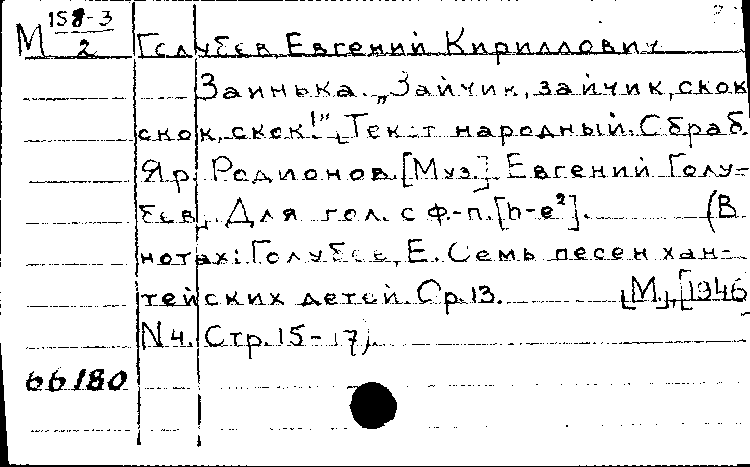 М 158-3/2 Голубев, Евгений Кириллович
Заинька. „Зайчик, зайчик, скок
скок, скок!", Текст народный. Обраб.
Яр. Родионов. [Муз.] Евгений Голу-
бев. Для гол. с ф-п. [h-e²]. (В
нотах: Голубев, Е. Семь песен хан-
тейских детей. Ор. 13. [М.], [1946
N 4. Стр. 15-17).
66180